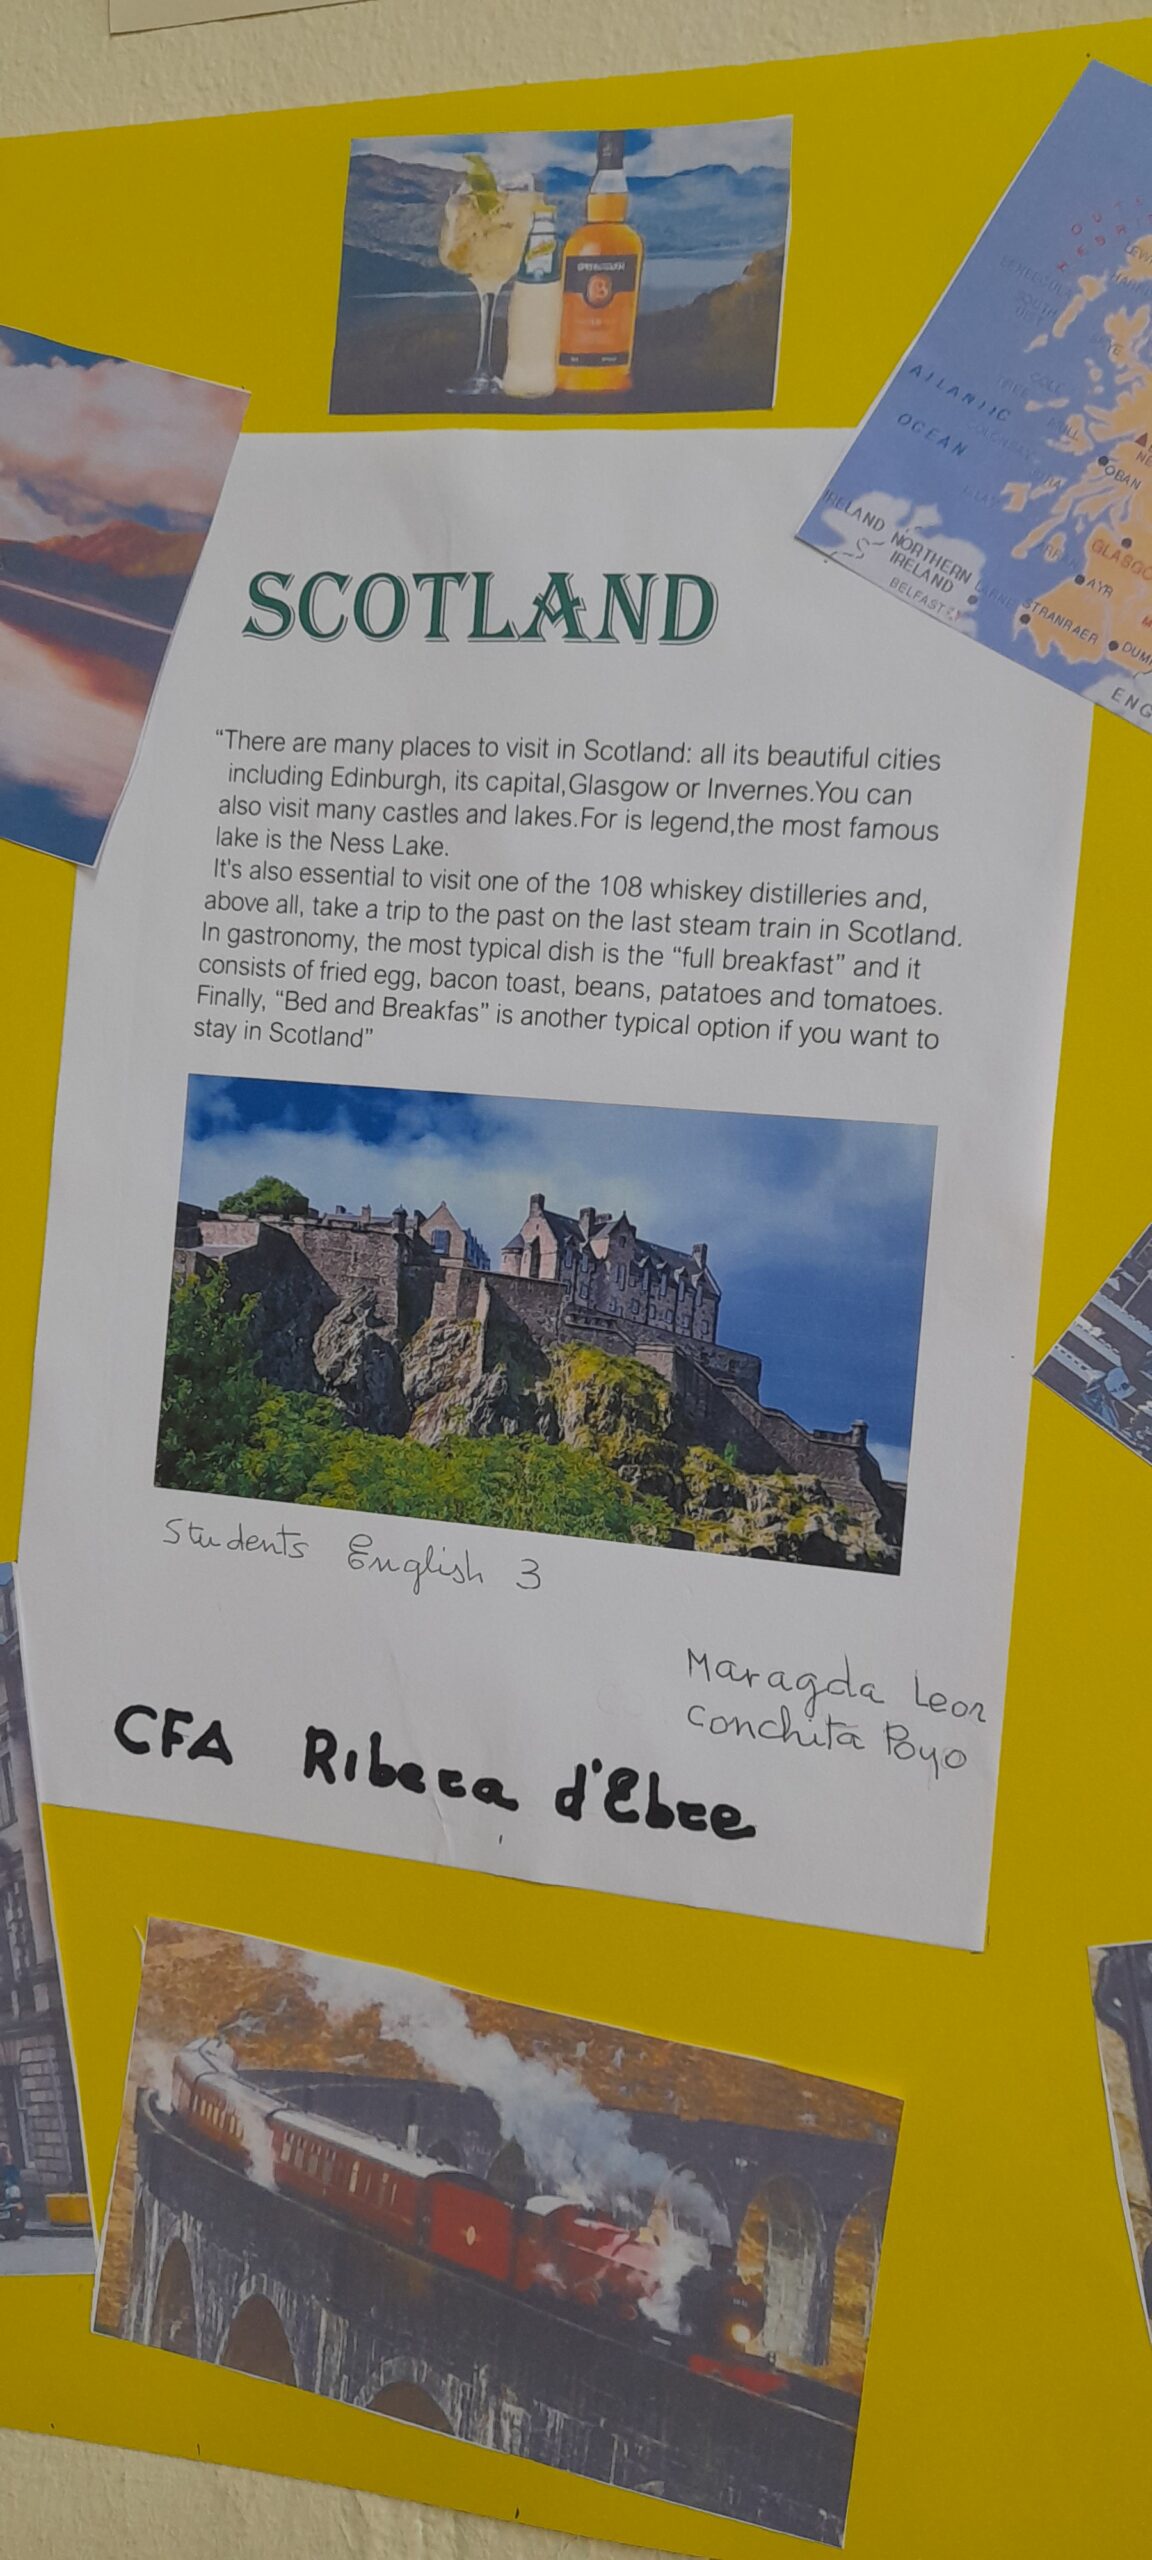 SCOTLAND
“There are many places to visit in Scotland: all its beautiful cities
including Edinburgh, its capital,Glasgow or Invernes.You can
also visit many castles and lakes.For is legend,the most famous
lake is the Ness Lake.
It's also essential to visit one of the 108 whiskey distilleries and,
above all, take a trip to the past on the last steam train in Scotland.
In gastronomy, the most typical dish is the “full breakfast” and it
consists of fried egg, bacon toast, beans, patatoes and tomatoes.
Finally, “Bed and Breakfas” is another typical option if you want to
stay in Scotland”
Students English 3
Maragda Leor
Conchita Poyo
CFA Ribera d'Ebre
ATLANTIC
OCEAN
MULL
OBAN
IRELAND
NORTHERN
IRELAND
BELFAST
LARNE
STRANRAER
AYR